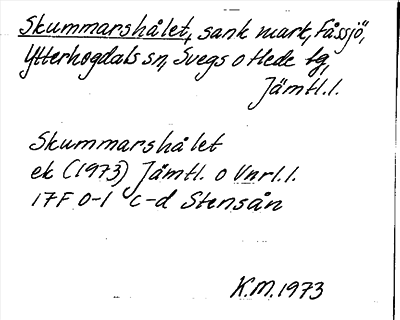 Skummarshålet, sank mark, Fåssjö,
Ytterhogdals sn, Svegs o Hede tg,
Jämtl.l.
Skummarshålet
ek (1973) Jämtl. o Vnrl.l.
17F 0-1 c-d Stensån
K.M.1973